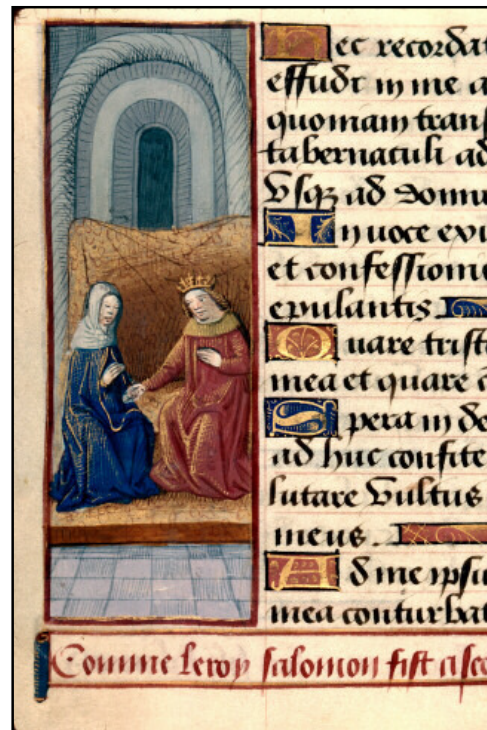 Hec recordat
effudi in me a
quoniam trans
tabernaculi ad
Vsqꝫ ad domu
In uoce exu
et confessioni
epulantis
Quare trist
mea et quare c
Spera in de
ad huc confite
lutare Vultus
meus.
Ad me ipsu
mea conturbat
Comme le roy salomon fist aseo